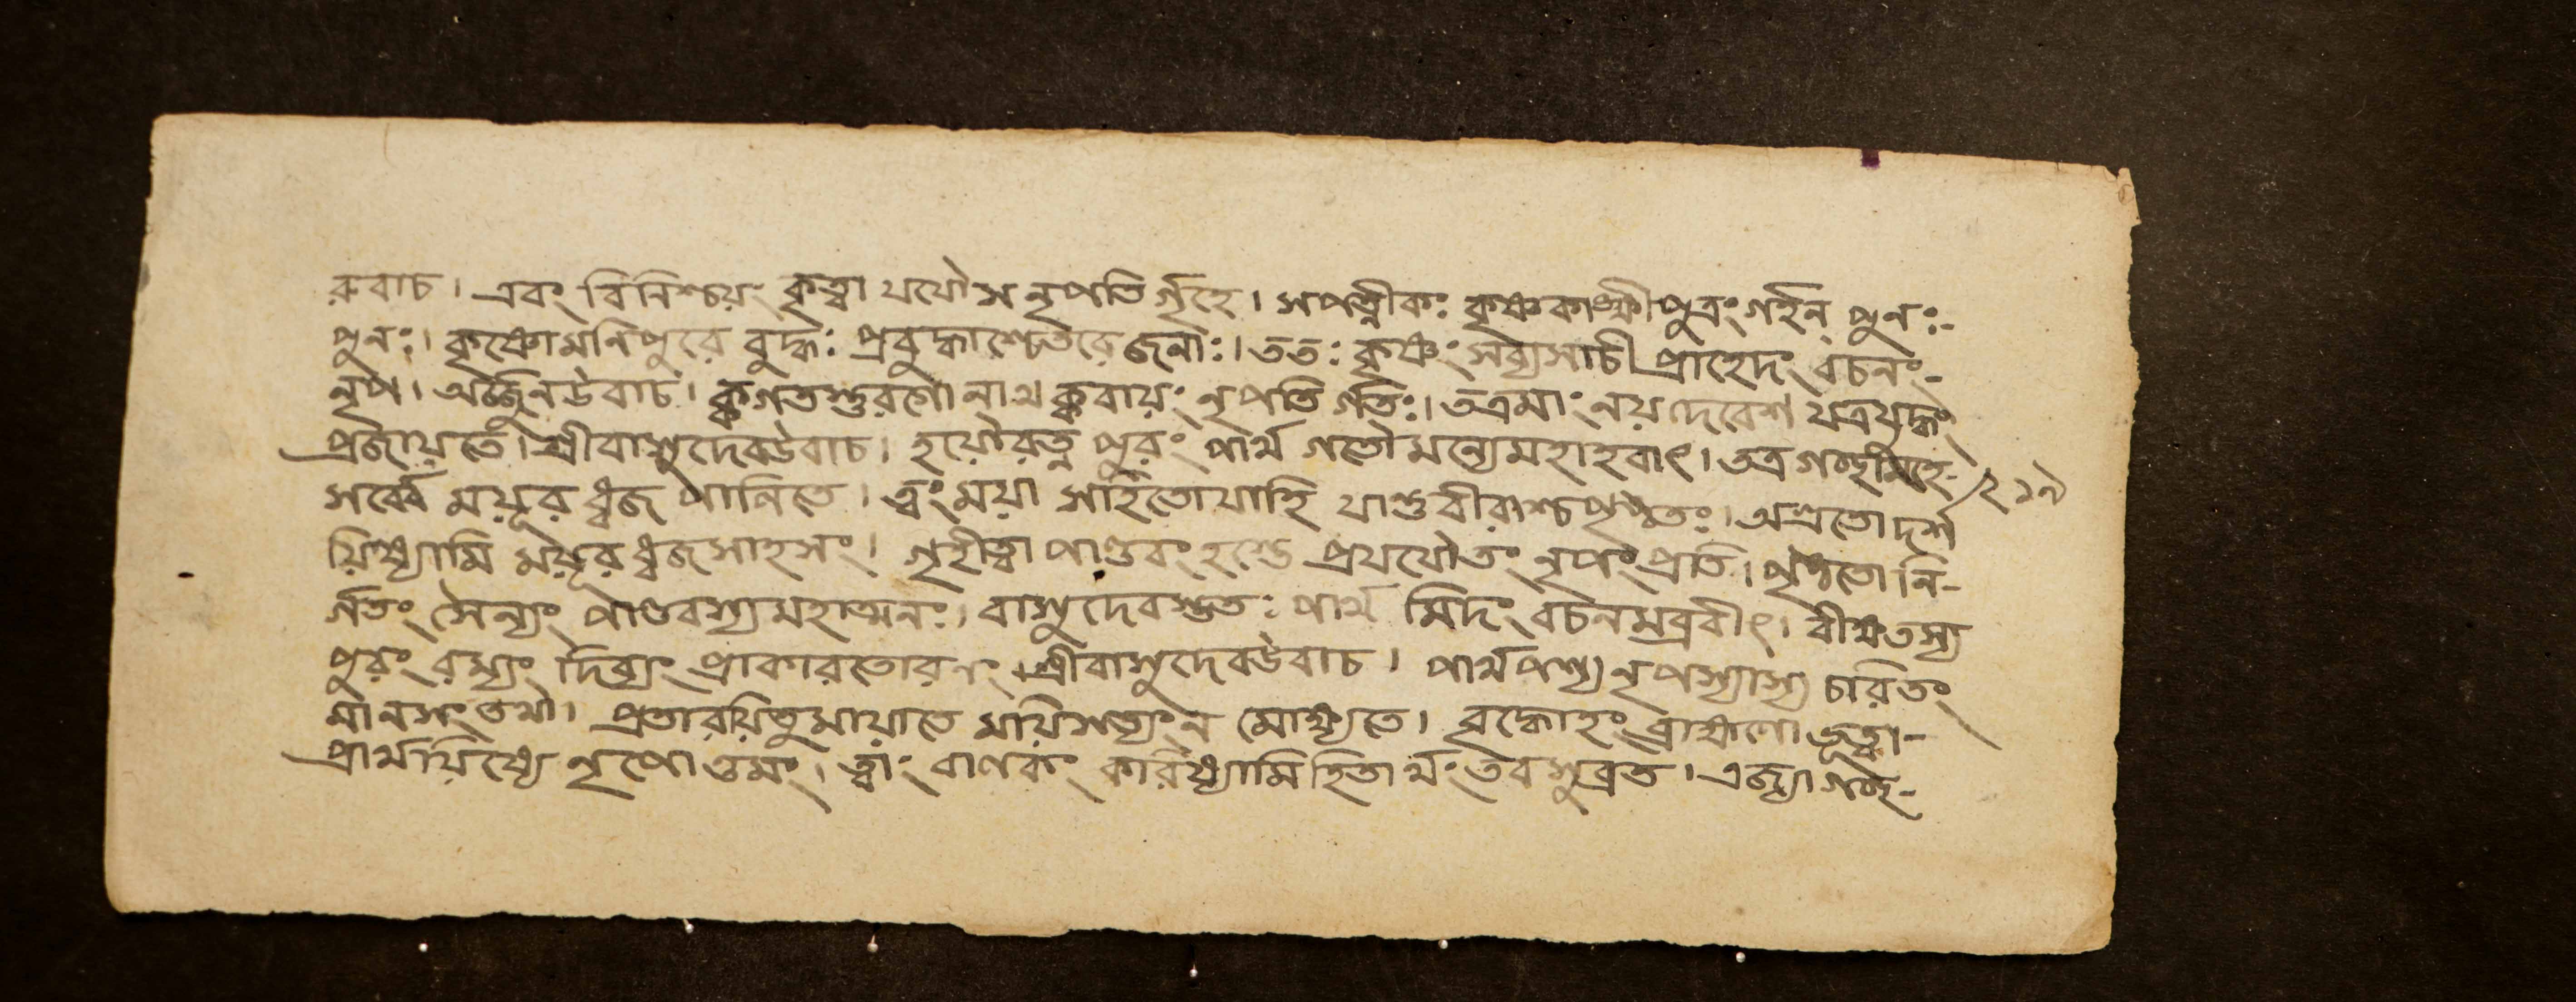 রুবাচ। এবং বিনিশ্চয়ং কৃত্বা যযৌ স নৃপতির্গৃহে। সপত্নীকঃ কৃষ্ণকাঙ্ক্ষী পুত্রং গর্হন্ পুনঃ-
পুনঃ। কৃষ্ণো মনিপুরে বুদ্ধঃ প্রবুদ্ধাশ্চেতরে জনাঃ। ততঃ কৃষ্ণং সব্যসাচী প্রাহেদং বচনং-
নৃপ। অর্জ্জুন উবাচ। ক্ব গতস্তুরগো নাথ ক্ব বায়ং নৃপতি র্গতিঃ। তত্র মাং নয় দেবেশ যত্র যুদ্ধং
প্রজায়তে। শ্রীবাসুদেব উবাচ। হয়ৌ রত্ন পুরং পার্থ গতৌ মন্যে মহাহবাৎ। তত্র গচ্ছামহে-
সর্ব্বে ময়ূরধ্বজ পালিতে। ত্বং ময়া সহিতো যাহি যান্তু বীরাশ্চ পৃষ্ঠতঃ। অগ্রতো দর্শ
২১৯
য়িষ্যামি ময়ূরধ্বজ সাহসং। গৃহীত্বা পাণ্ডবং হস্তে প্রযযৌ তং নৃপং প্রতি। পৃষ্ঠতো নি-
র্গতং সৈন্যং পাণ্ডবস্য মহাত্মনঃ। বাসুদেবস্তুতঃ পার্থ মিদং বচনমব্রবীৎ। বীক্ষ্য তস্য
পুরং রম্যং দিব্যং প্রাকারতোরণং। শ্রীবাসুদেব উবাচ। পার্থ পশ্য নৃপস্যাস্য চরিতং
মানসং তথা। প্রতারয়িতুমায়াতে ময়ি সত্যং ন মোক্ষ্যতে। বৃদ্ধোহং ব্রাহ্মণো ভূত্বা-
প্রার্থয়িষ্যে নৃপোত্তমং। ত্বাং বালকং করিষ্যামি হিতার্থং তব সুব্রত। এহ্যাগচ্ছ-